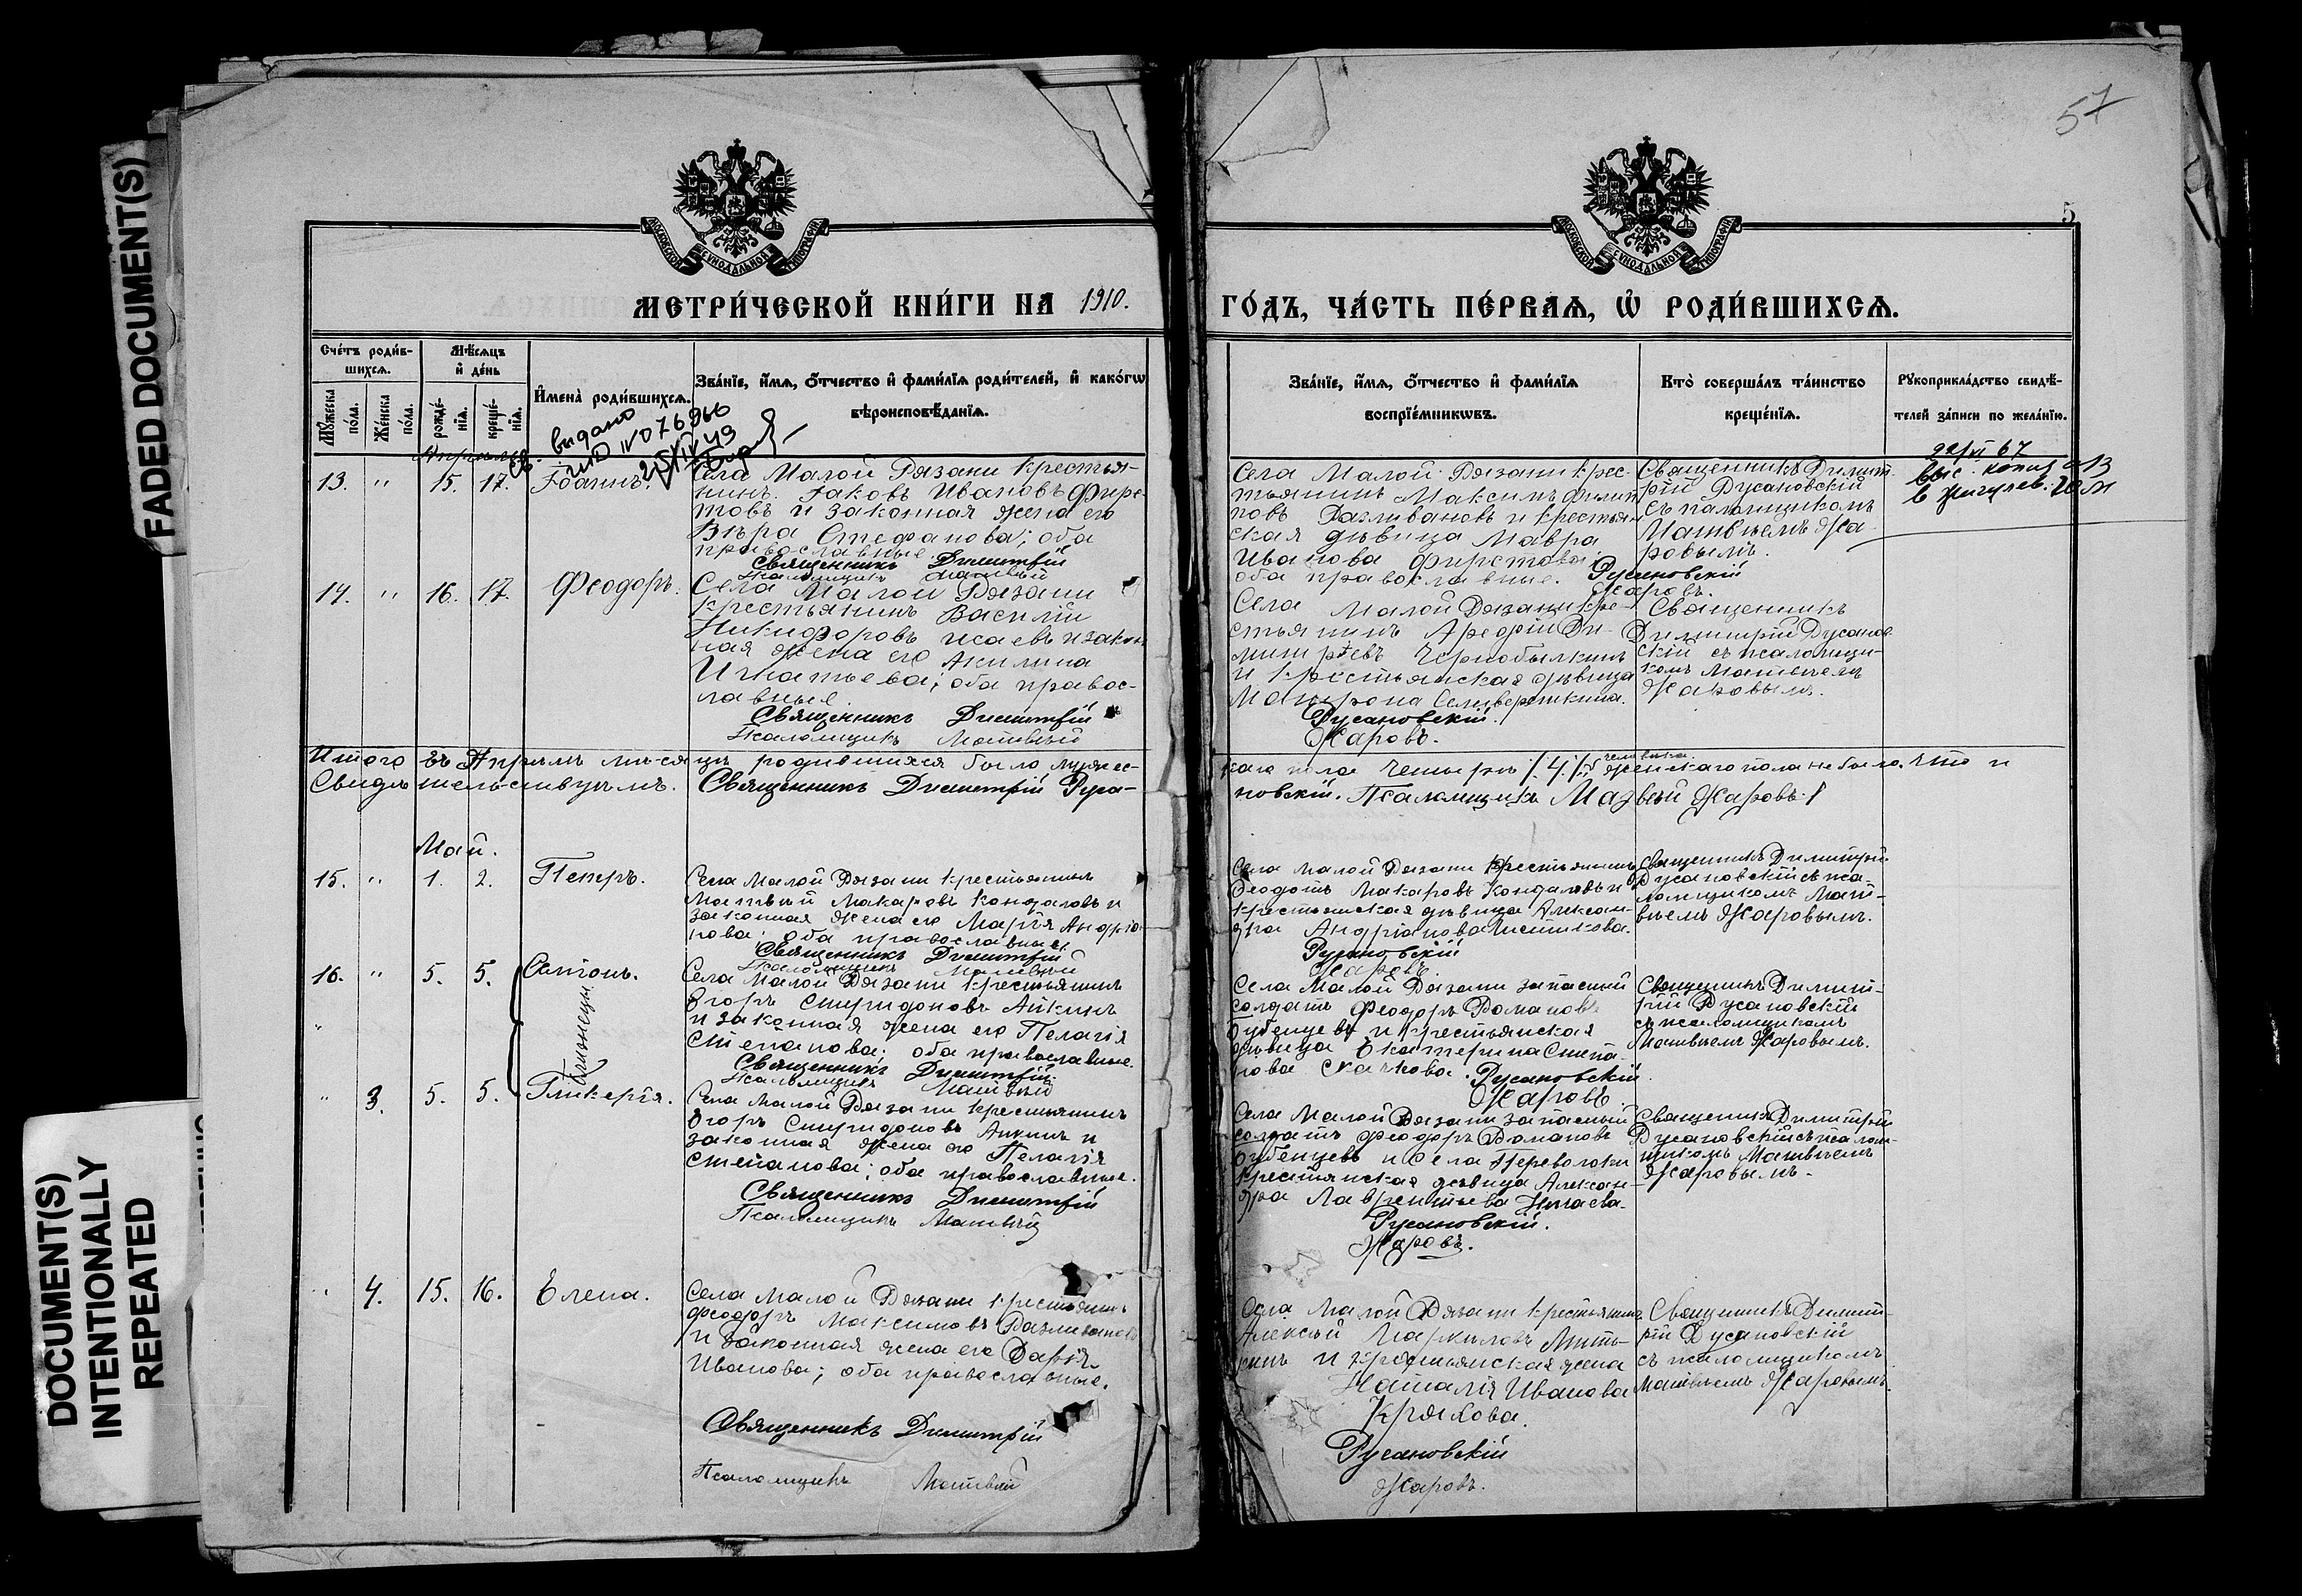 FADED DOCUMENT(S)
DOCUMENT(S)
INTENTIONALLY
REPEATED
57
5
МОСКОВСКОЙ СѴНОДАЛЬНОЙ ТИПОГРАФІИ
МОСКОВСКОЙ СѴНОДАЛЬНОЙ ТИПОГРАФІИ
МЕТРИ́ЧЕСКОЙ КНИ́ГИ НА 1910.
ГО́ДЪ, ЧА́СТЬ ПЕ́РВАѦ, Ѡ҆ РОДИ́ВШИХСѦ.
Сче́тъ роди́в-
шихсѧ.
Мꙋ́жеска по́ла.
Же́нска по́ла.
Мѣ́сѧцъ
и҆ де́нь
рожде́-
нїѧ.
креще́-
нїѧ.
И҆мена̀ роди́вшихсѧ.
Зва́нїе, и҆́мѧ, ѻ҆́тчество и҆ фами́лїѧ роди́телей, и҆ како́гѡ
вѣроисповѣ́данїѧ.
Зва́нїе, и҆́мѧ, ѻ҆́тчество и҆ фами́лїѧ
воспрїе́мникѡвъ.
Кто̀ соверша́лъ та́инство
креще́нїѧ.
Рꙋкоприкла́дство свидѣ́-
телей за́писи по жела́нїю.
Св. выдано
Апрель
13. " 15. 17. Іоаннъ.
Села Малой Рязани крестья-
нинъ Іаковъ Ивановъ Фирс-
товъ и законная жена его
Вѣра Стефанова; оба
православные.
Священникъ Димитрій
Псаломщикъ Матвѣй
Села Малой Рязани крес-
тьянинъ Максимъ Филип-
повъ Разливановъ и крестьян-
ская дѣвица Мавра
Иванова Фирстова;
оба православные.
Русановскій
Жаровъ.
Священникъ Димит-
рій Русановскій
съ псаломщикомъ
Матвѣемъ Жа-
ровымъ.
выс. копия
14. " 16. 17. Феодоръ.
Села Малой Рязани
крестьянинъ Василій
Никифоровъ Исаевъ и закон-
ная жена его Акилина
Игнатьева; оба правос-
лавные.
Священникъ Димитрій
Псаломщикъ Матвѣй
Села Малой Рязани кре-
стьянинъ Андрій Ди-
митріевъ Чернобылкинъ
и крестьянская дѣвица
Матрона Селиверсткина.
Русановскій.
Жаровъ.
Священникъ
Димитрій Русанов-
скій съ псаломщи-
комъ Матвѣемъ
Жаровымъ.
Итого въ Апрѣлѣ мѣсяцѣ родившихся было мужес-
каго пола четыре /4./ человѣка, женскаго пола не было. Что и
Свидѣтельствуемъ. Священникъ Димитрій Руса-
новскій. Псаломщикъ Матвѣй Жаровъ.
Май.
15. " 1. 2. Петръ.
Села Малой Рязани крестьянинъ
Матвѣй Макаровъ Кондаловъ и
законная жена его Марія Андріа-
нова; оба православные.
Священникъ Димитрій
Псаломщикъ Матвѣй
Села Малой Рязани крестьянинъ
Феодотъ Макаровъ Кондаловъ и
крестьянская дѣвица Алексан-
дра Андріанова
Русановскій
Жаровъ.
Священникъ Димитрій
Русановскій съ пса-
ломщикомъ Мат-
вѣемъ Жаровымъ.
16. " 5. 5. Антонъ.
Близнецы.
Села Малой Рязани крестьянинъ
Егоръ Спиридоновъ Апкинъ
и законная жена его Пелагія
Степанова; оба православные.
Священникъ Димитрій
Псаломщикъ Матвѣй
Села Малой Рязани запасный
солдатъ Феодоръ Романовъ
Бубенцевъ и крестьянская
дѣвица Екатерина Степа-
нова Скачкова. Русановскій.
Жаровъ.
Священникъ Димит-
рій Русановскій
съ псаломщикомъ
Матвѣемъ Жаровымъ.
" 3. 5. 5. Гликерія.
Села Малой Рязани крестьянинъ
Егоръ Спиридоновъ Апкинъ и
законная жена его Пелагія
Степанова; оба православные.
Священникъ Димитрій
Псаломщикъ Матвѣй
Села Малой Рязани запасный
солдатъ Феодоръ Романовъ
Бубенцевъ и села Переволоки
крестьянская дѣвица Алексан-
дра Лаврентьева
Русановскій.
Жаровъ.
Священникъ Димитрій
Русановскій съ псалом-
щикомъ Матвѣемъ
Жаровымъ.
" 4. 15. 16. Елена.
Села Малой Рязани крестьянинъ
Феодоръ Максимовъ Разливановъ
и законная жена его Дарія
Иванова; оба православные.
Священникъ Димитрій
Псаломщикъ Матвѣй
Села Малой Рязани крестьянинъ
Алексѣй
и крестьянская жена
Наталія Иванова
Крюкова.
Русановскій
Жаровъ.
Священникъ Димит-
рій Русановскій
съ псаломщикомъ
Матвѣемъ Жаровымъ.